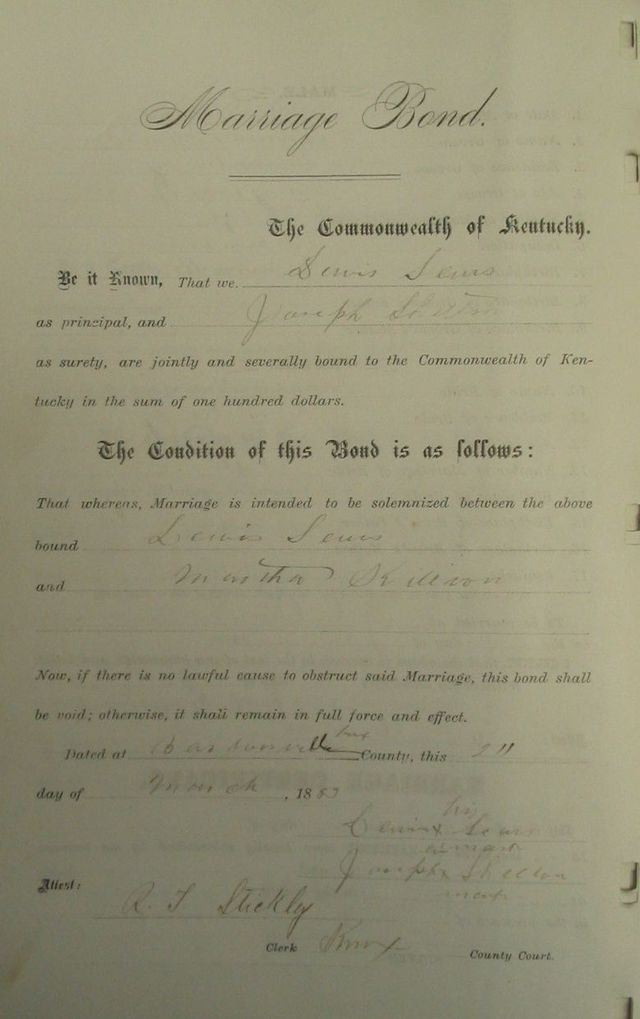 Marriage Bond.
The Commonwealth of Kentucky.
Be it Known, That we Lewis
as principal, and Joseph
as surety, are jointly and severally bound to the Commonwealth of Ken-
tucky in the sum of one hundred dollars.
The Condition of this Bond is as follows:
That whereas, Marriage is intended to be solemnized between the above
bound Lewis
and Martha
Now, if there is no lawful cause to obstruct said Marriage, this bond shall
be void; otherwise, it shall remain in full force and effect.
Knox
Dated at Barbourville County, this
day of March, 1883
his
Lewis x
mark
Joseph x
mark
Attest:
Stickly
Clerk Knox County Court.